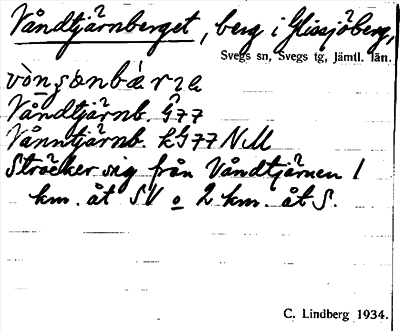 Våndtjärnberget, berg i Glissjöberg,
Svegs sn, Svegs tg, Jämtl. län.
Våndtjärnb. G77
Vånntjärnb. kG77 N.M
Sträcker sig från Våndtjärnen 1
km. åt SV o 2 km. åt S.
C. Lindberg 1934.